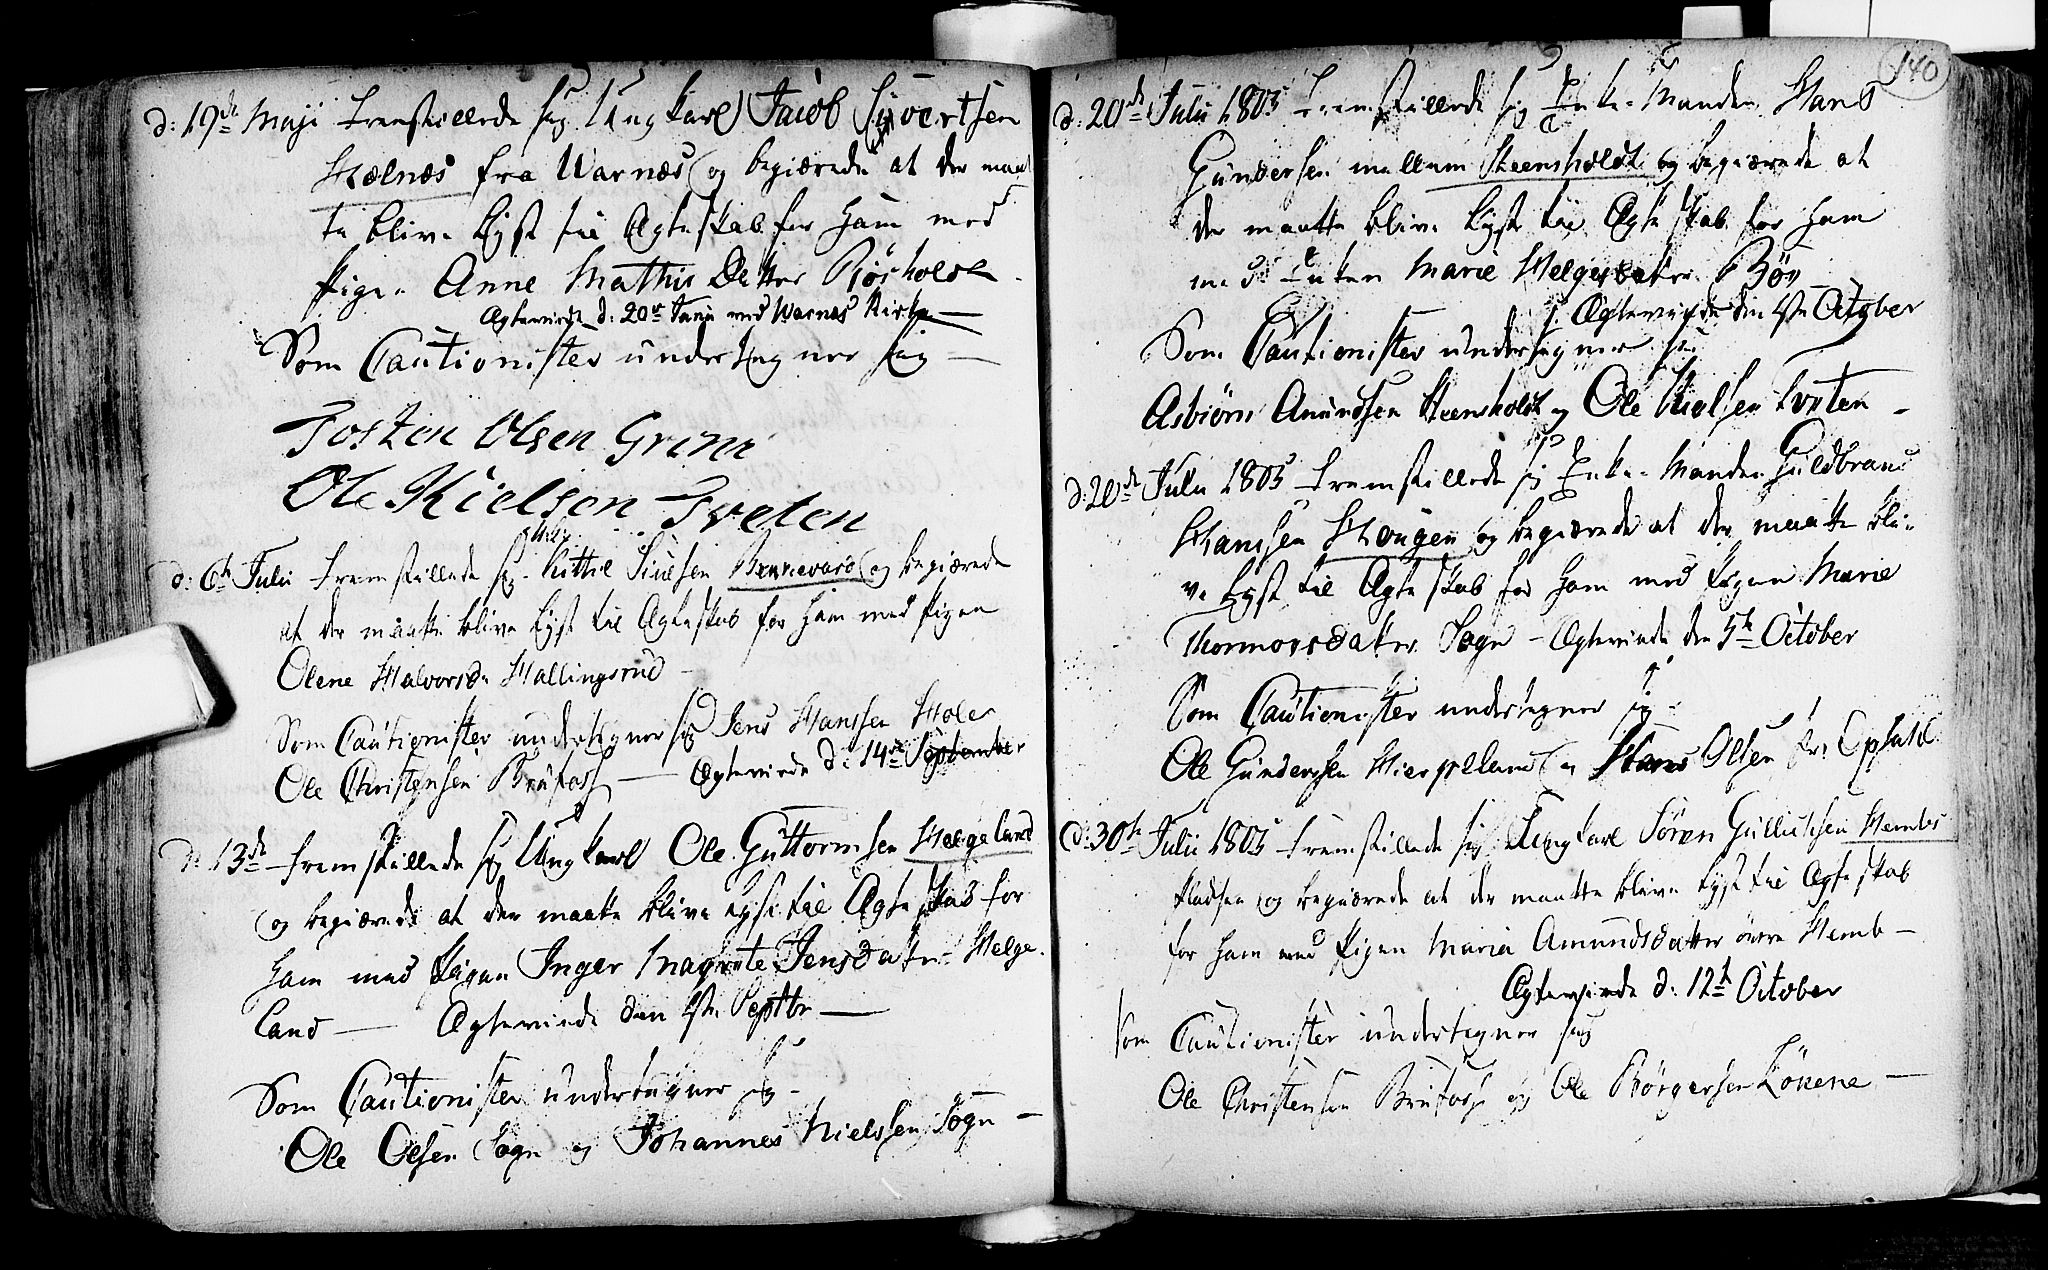 d: 19de Maji Fremstillede sig Ungkarl Jacob Syvertsen
Helnæs fra Warnæs og begiærede at der maat
te blive lyst til Ægteskab for ham med
Pigen Anne Mathis Datter Röeholdt
Ægteviede d: 20de Junii ved Warnæs Kirke
Som Cautionister undertegner sig
Tosten Olsen Grene
Ole Kielsen Tveten
d: 6te Julii Fremstillede sig Kittil Siulsen og begiærede
at der maatte blive lyst til Ægteskab for ham med Pigen
Olene Halvorsdr Hallingsrud
Som Cautionister undertegner sig Jens Hanssen Holer
Ole Christensen Brufoss — Ægteviede d: 14de September
d: 13de Fremstillede sig Ungkarl Ole Guttormsen Helgeland
og begiærede at der maatte blive lyst til Ægteskab for
ham med Pigen Inger Magrete Jensdatter Helge
land — Ægteviede den Septbr —
Som Cautionister undertegner sig
Ole Olsen Sogn og Johannes Nielssen Sogn —
140
d: 20de Julii 1805 Fremstillede sig Enke-Manden Hans
Gundersen mellem Steensholdt og begiærede at
der maatte blive lyst til Ægteskab for ham
med Enken Marie Helgesdatter Böe
Ægteviede den October
Som Cautionister undertegner sig
Asbiörn Amundsen Steensholdt og Ole Kielsen Tveten
d: 20de Julii 1805 Fremstillede sig Enke-Manden Guldbrand
Hanssen Hougen og begiærede at der maatte bli-
ve lyst til Ægteskab for ham med Pigen Marie
Thormorsdatter Sogn — Ægteviede den 5te October
Som Cautionister undertegner sig
Ole Gundersen og Hans Olsen Opsald
d: 30te Julii 1805 Fremstillede sig Ungkarl Sören Gullichsen Hembs
Pladsen og begiærede at der maatte blive lyst til Ægteskab
for ham med Pigen Maria Amundsdatter övre Hemb —
Ægteviede d: 12te October
Som Cautionister undertegner sig
Ole Christensen Brufoss og Ole Börgersen Lönene —